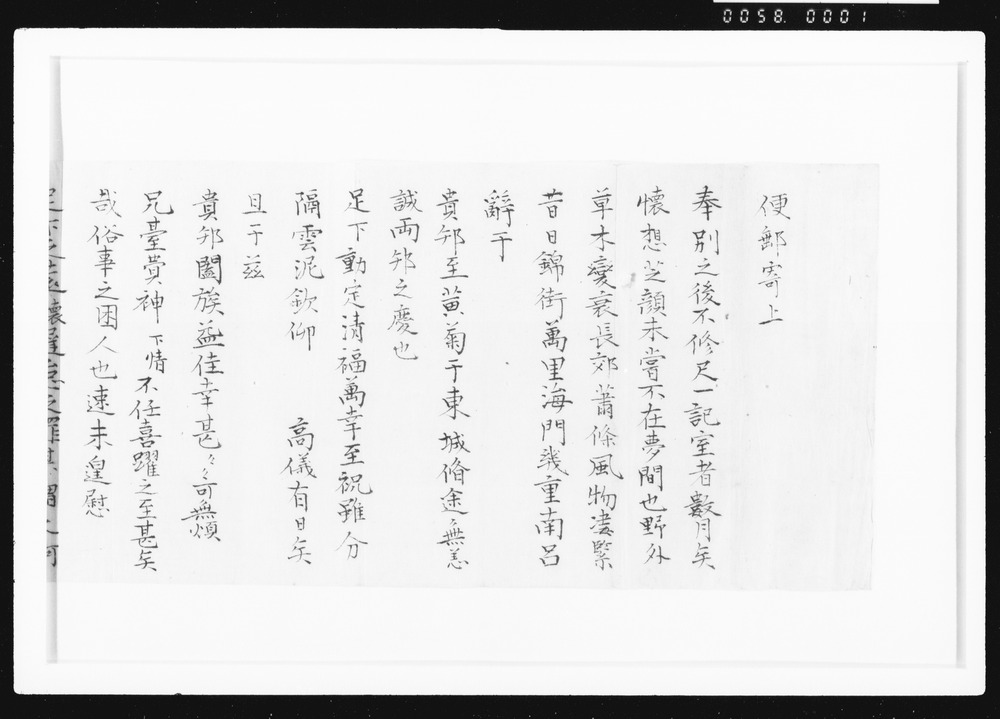 0058. 0001
便郵寄上
奉別之後不修尺一記室者數月矣
懷想芝顏未嘗不在夢間也野外
草木變衰長郊蕭條風物凄緊
昔日錦街萬里海門幾重南呂
辭于
貴邦至黃菊于東城脩途無恙
誠兩邦之慶也
足下動定清福萬幸至祝雖分
隔雲泥欽仰 高儀有日矣
且于茲
貴邦闔族益佳幸甚々々可無煩
兄臺費神 下情不任喜躍之至甚矣
哉俗事之困人也速未遑慰
足下之遠懷